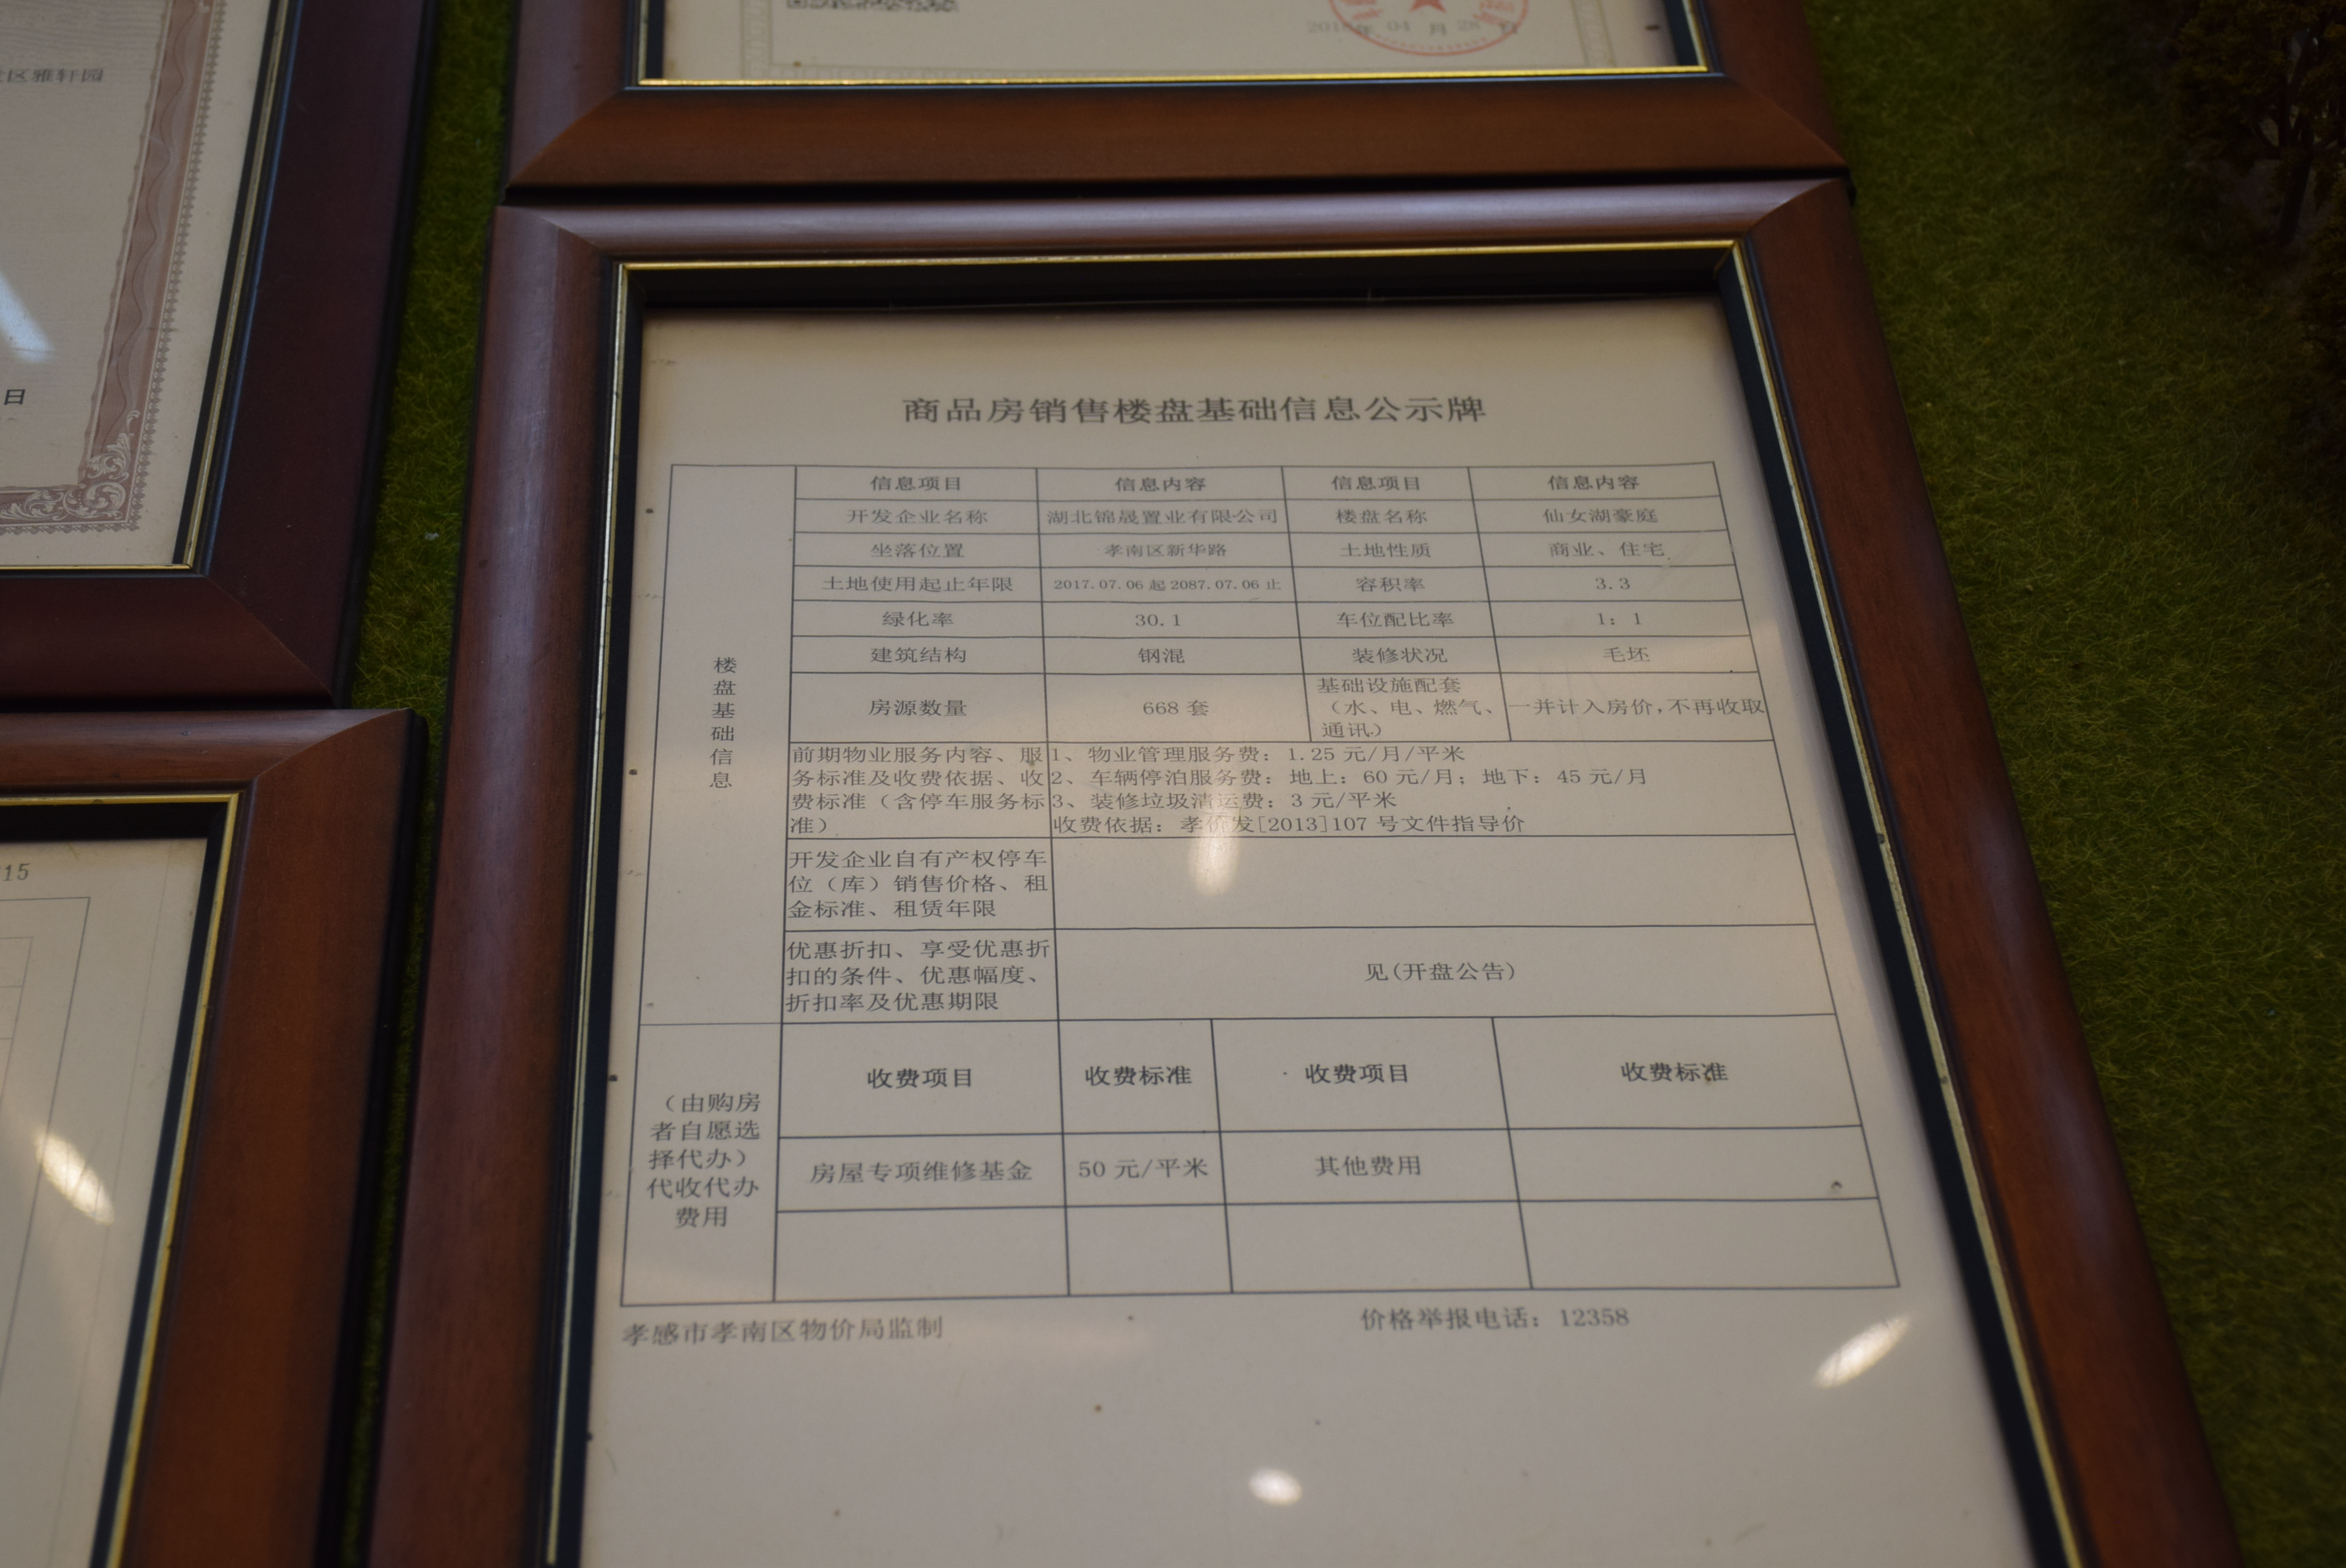 区雅轩园
日
15
2018年 04 月 28 日
商品房销售楼盘基础信息公示牌
楼盘基础信息
信息项目 信息内容 信息项目 信息内容
开发企业名称 湖北锦晟置业有限公司 楼盘名称 仙女湖豪庭
坐落位置 孝南区新华路 土地性质 商业、住宅
土地使用起止年限 2017.07.06 起 2087.07.06 止 容积率 3.3
绿化率 30.1 车位配比率 1：1
建筑结构 钢混 装修状况 毛坯
房源数量 668 套 基础设施配套
（水、电、燃气、
通讯）
一并计入房价,不再收取
前期物业服务内容、服
务标准及收费依据、收
费标准（含停车服务标
准）
1、物业管理服务费：1.25 元/月/平米
2、车辆停泊服务费：地上：60 元/月；地下：45 元/月
3、装修垃圾清运费：3 元/平米
收费依据：孝价发[2013]107 号文件指导价
开发企业自有产权停车
位（库）销售价格、租
金标准、租赁年限
优惠折扣、享受优惠折
扣的条件、优惠幅度、
折扣率及优惠期限
见(开盘公告)
（由购房
者自愿选
择代办）
代收代办
费用
收费项目 收费标准 收费项目 收费标准
房屋专项维修基金 50 元/平米 其他费用
孝感市孝南区物价局监制 价格举报电话：12358